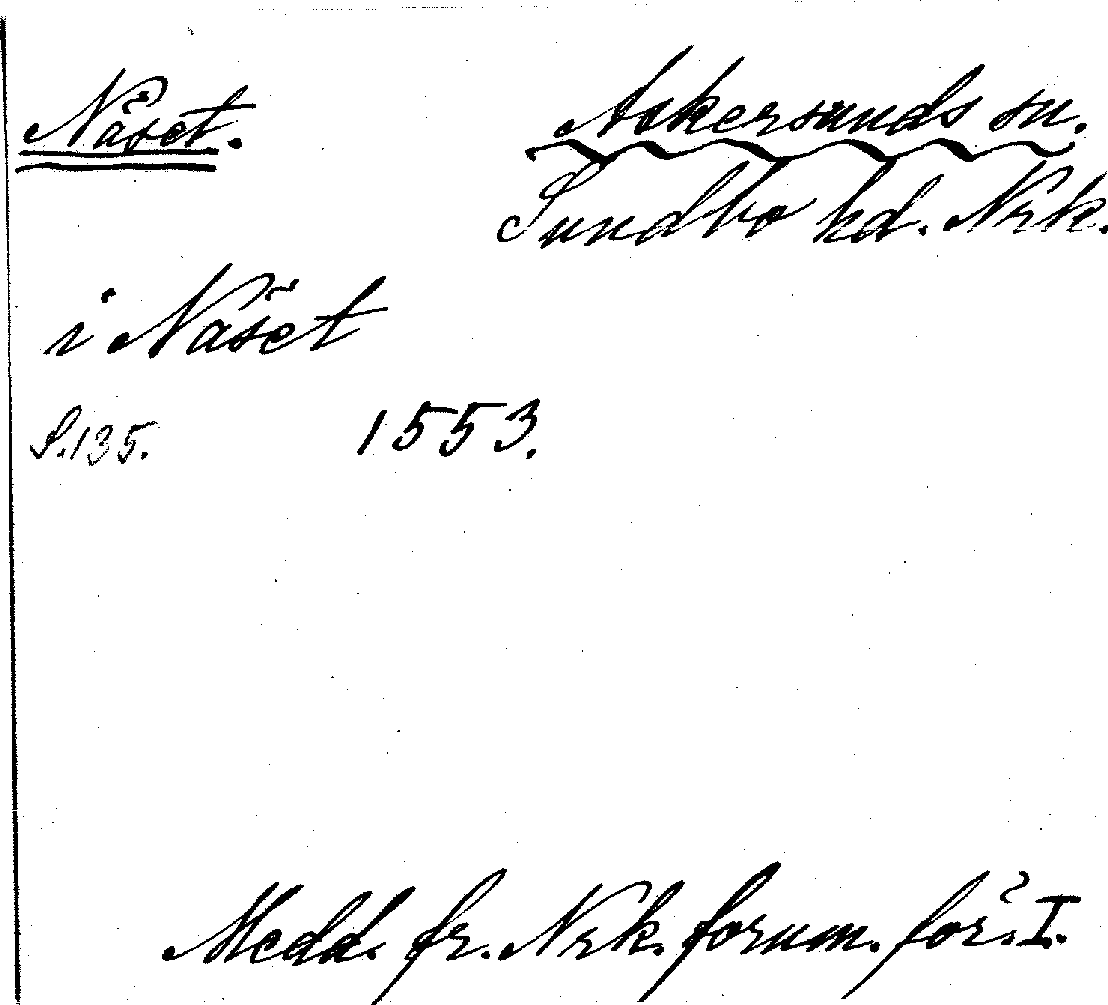 Näset.
Askersunds sn.
Sundbo hd. Nrk.
i Näset
S. 135.
1553.
Medd. fr. Nrk. fornm. för. I.